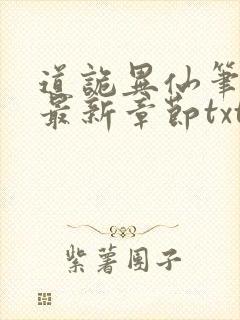 道詭異仙筆
最新章節txt
紫薯團子